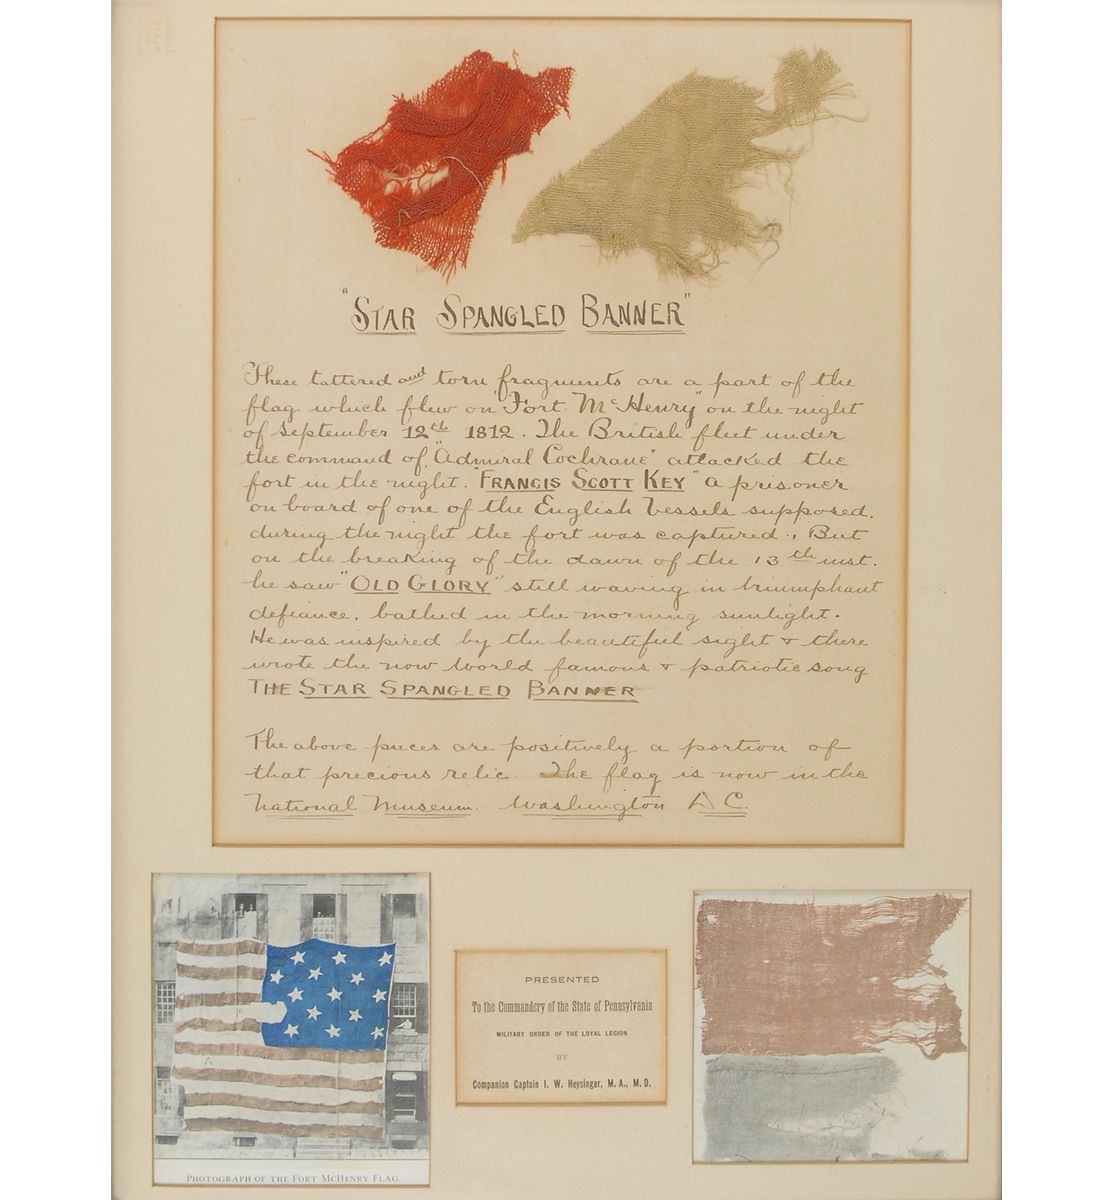 "STAR SPANGLED BANNER"
These tattered and torn fragments are a part of the
flag which flew on "Fort McHenry" on the night
of September 12th 1812. The British fleet under
the command of "Admiral Cochrane" attacked the
fort in the night. "FRANCIS SCOTT KEY" a prisoner
on board of one of the English Vessels supposed.
during the night the fort was captured., But
on the breaking of the dawn of the 13th inst.
he saw "OLD GLORY" still waving in triumphant
defiance, bathed in the morning sunlight.
He was inspired by the beautiful sight & there
wrote the now world famous & patriotic song
THE STAR SPANGLED BANNER
The above pieces are positively a portion of
that precious relic. The flag is now in the
National Museum. Washington D.C.
PHOTOGRAPH OF THE FORT MCHENRY FLAG.
PRESENTED
To the Commandery of the State of Pennsylvania
MILITARY ORDER OF THE LOYAL LEGION
BY
Companion Captain I. W. Heysinger, M. A., M. D.